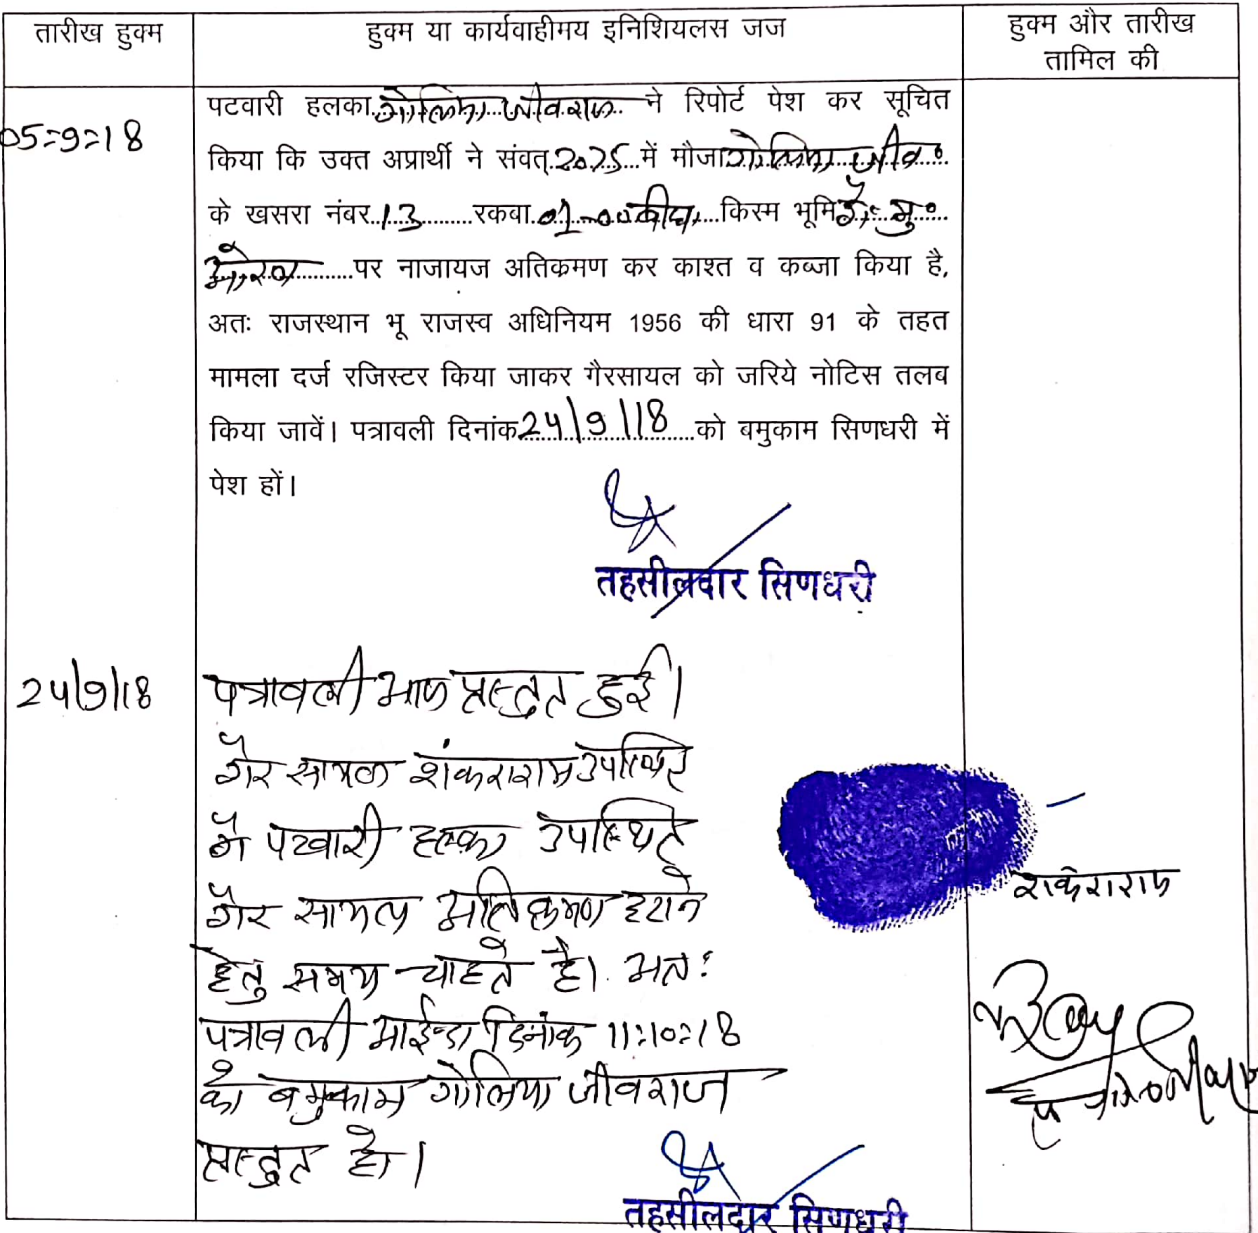 तारीख हुक्म
हुक्म या कार्यवाहीमय इनिशियलस जज
हुक्म और तारीख
तामिल की
05=9=18
पटवारी हलका गोलिया जीवराज ने रिपोर्ट पेश कर सूचित
किया कि उक्त अप्रार्थी ने संवत् 2075 में मौजा गोलिया जीव०
के खसरा नंबर 13 रकबा 01-00 बीघा किस्म भूमि गै० मु०
ओरण पर नाजायज अतिकमण कर काश्त व कब्जा किया है,
अतः राजस्थान भू राजस्व अधिनियम 1956 की धारा 91 के तहत
मामला दर्ज रजिस्टर किया जाकर गैरसायल को जरिये नोटिस तलव
किया जावें। पत्रावली दिनांक 24/9/18 को बमुकाम सिणधरी में
पेश हों।
तहसीलदार सिणधरी
24/9/18
पत्रावली आज प्रस्तुत हुई।
गैर सायल शंकराराम उपस्थित
पटवारी हल्का उपस्थित
गैर सायल अतिक्रमण हटाने
हेतु समय चाहते है। अतः
पत्रावली आईन्दा दिनांक 11:10:18
को बमुकाम गोलिया जीवराज
प्रस्तुत हो।
शंकराराम
तहसीलदार सिणधरी